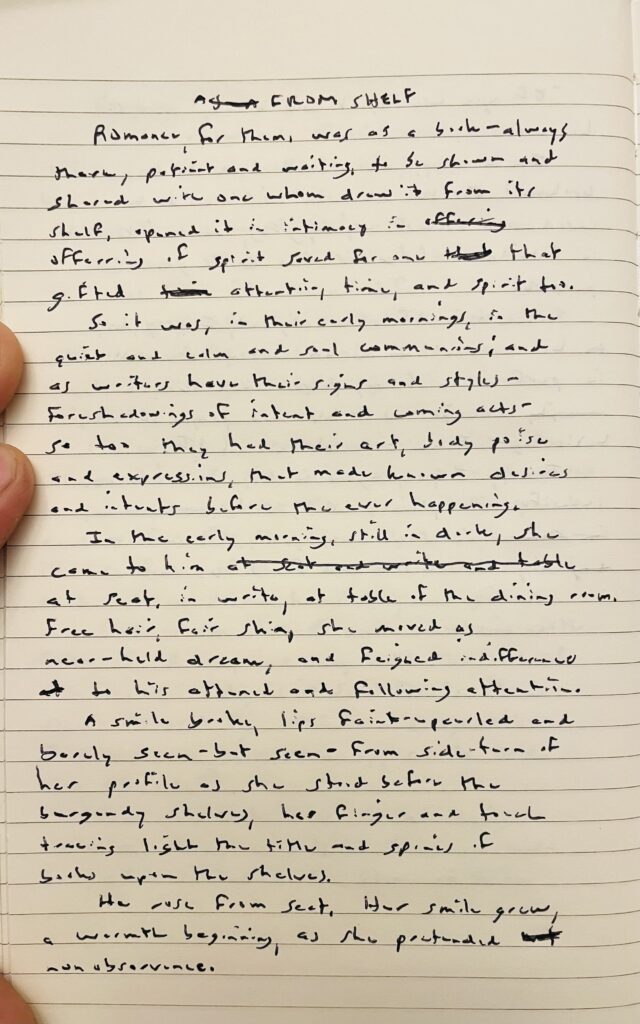 AS A FROM SHELF
Romance, for them, was as a book-always
there, patient and waiting, to be shown and
shared with one whom drew it from its
shelf, opened it in intimacy in offering
offerring of spirit saved for one that
gifted attention, time, and spirit too.
So it was, in their early mornings, in the
quiet and calm and soul communing; and
as writers have their signs and styles-
foreshadowings of intent and coming acts-
so too they had their art, body poise
and expressions, that made known desires
and intents before the ever happening.
In the early morning, still in dark, she
came to him at seat and write and table
at seat, in write, at table of the dining room.
Free hair, fair skin, she moved as
near-held dream, and feigned indifference
to his attuned and following attention.
A smile broke, lips faint-upcurled and
barely seen-but seen-from side-turn of
her profile as she stood before the
burgundy shelves, her finger and touch
tracing light the title and spines of
books upon the shelves.
He rose from seat. Her smile grew,
a warmth beginning, as she pretended
non observance.